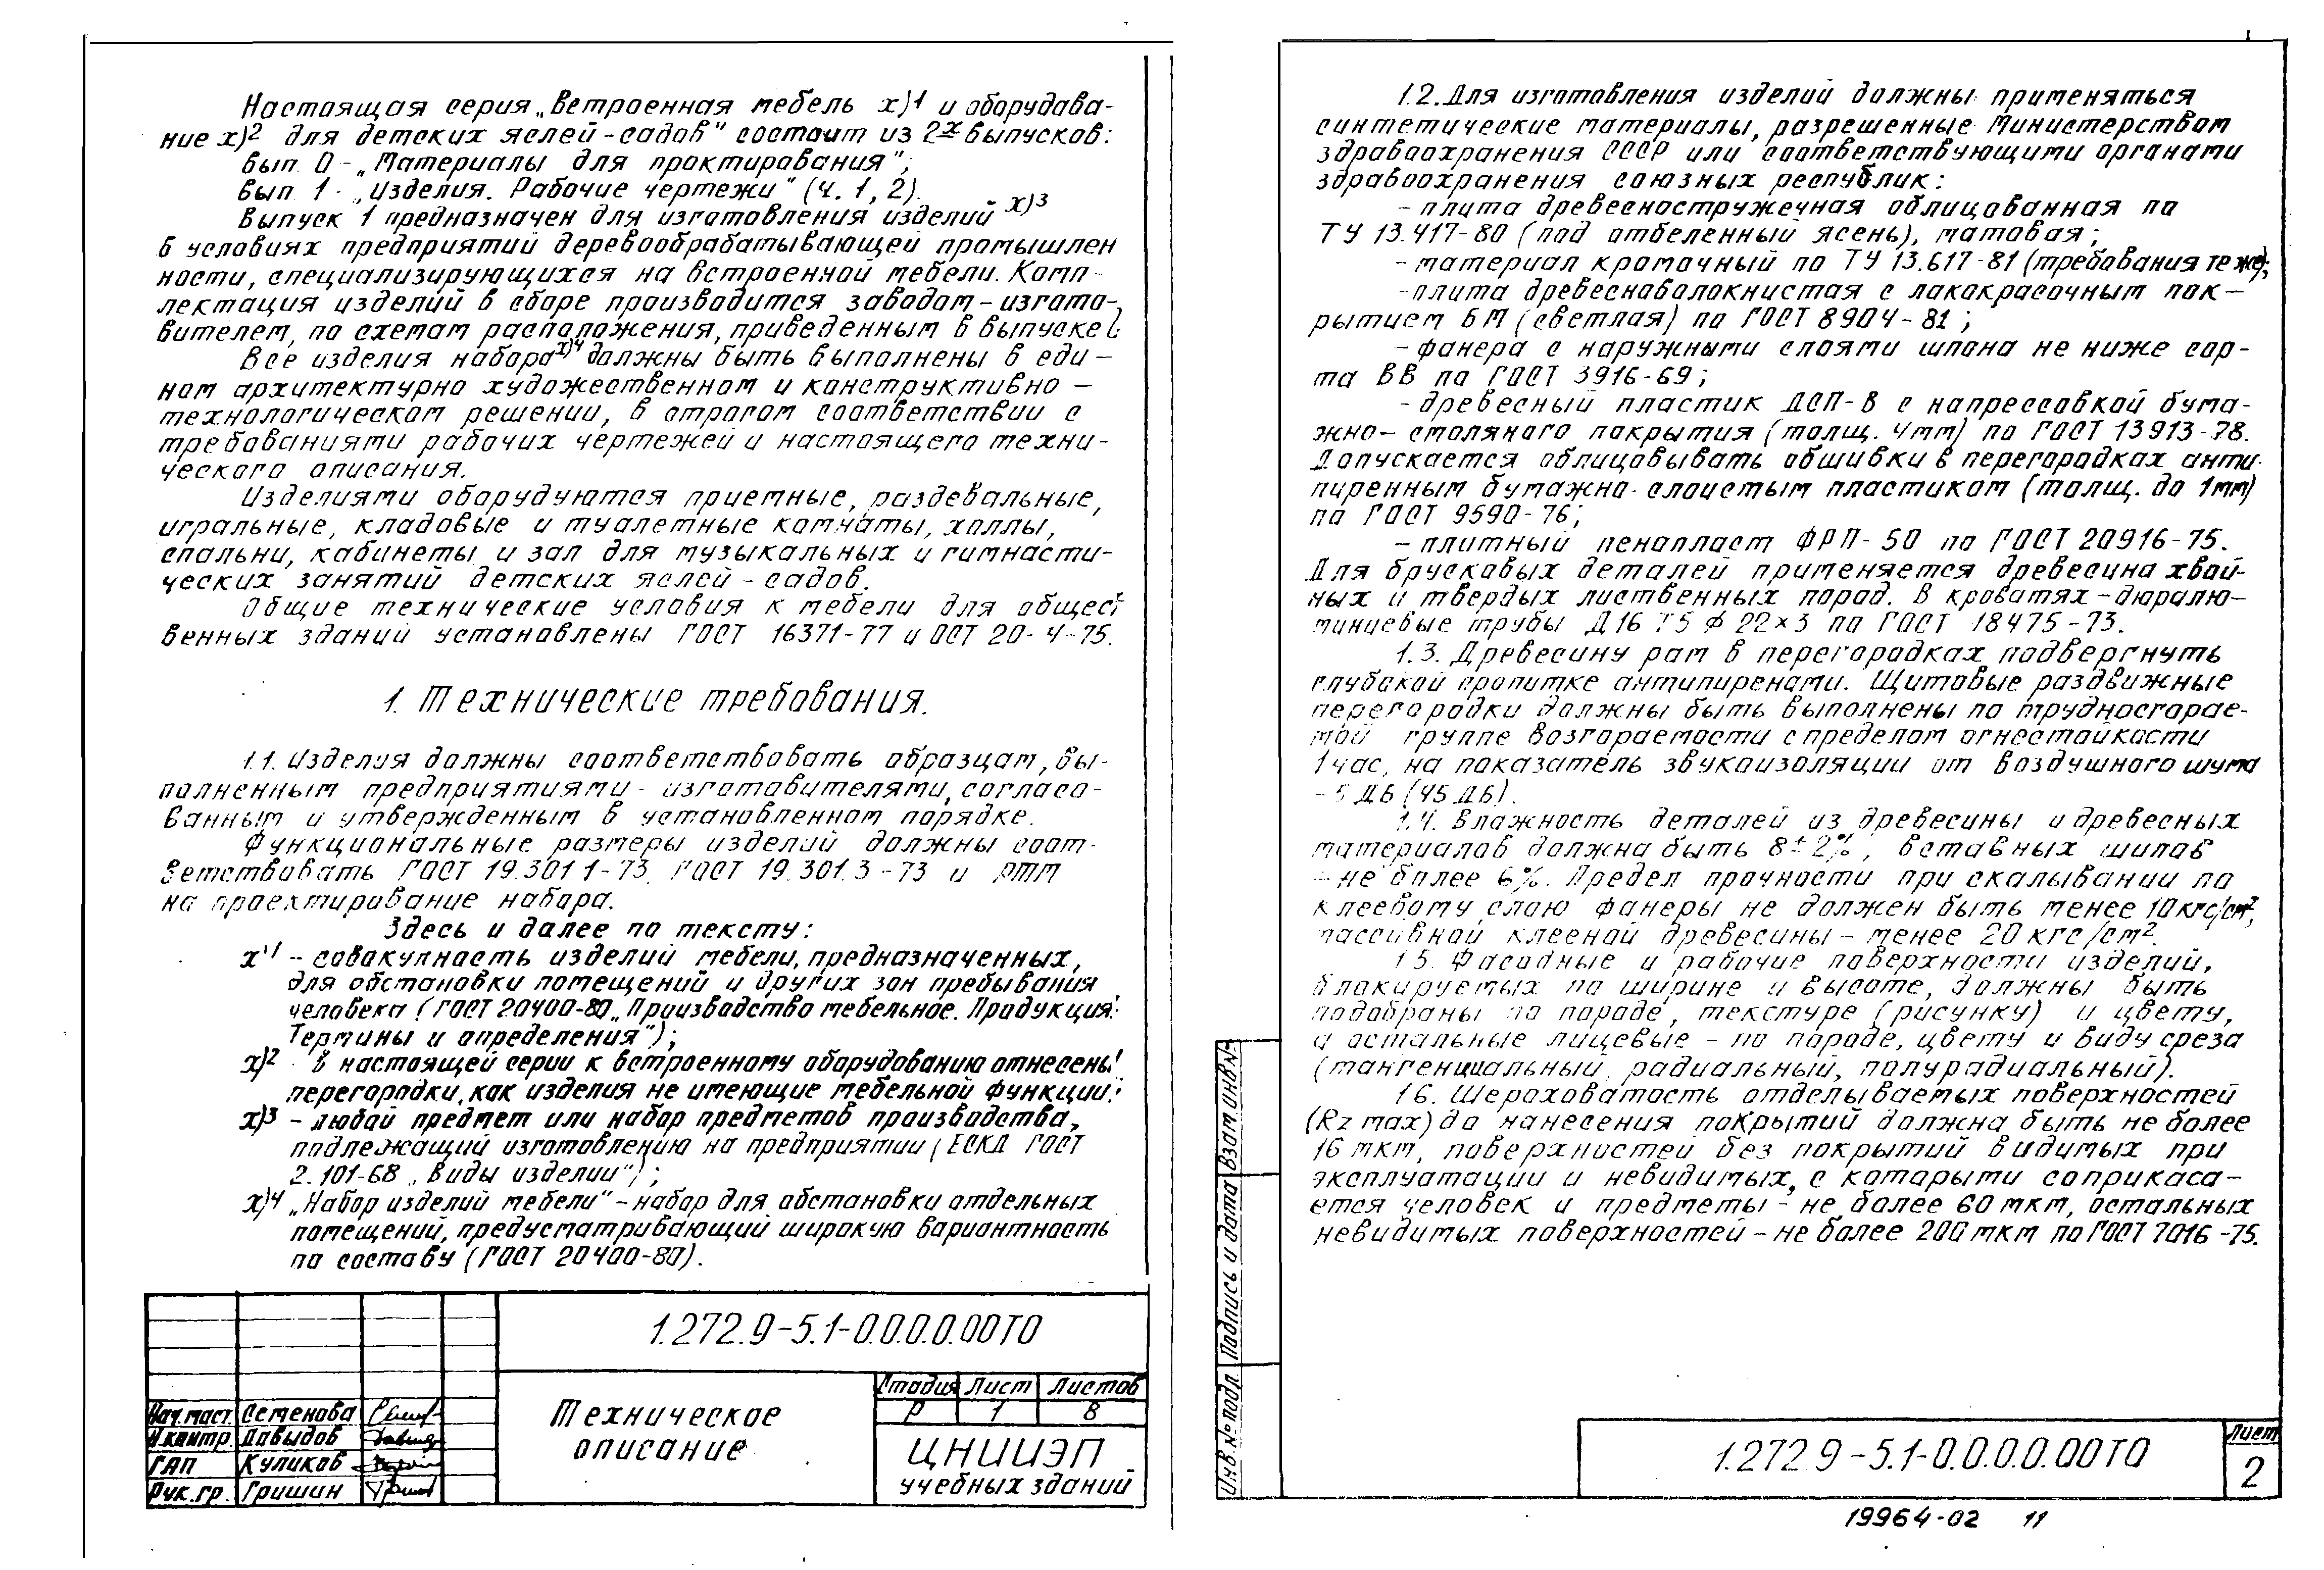 Настоящая серия „Встроенная мебель х)1 и оборудова-
ние х)2 для детских яслей-садов" состоит из 2х выпусков:
вып. 0 - „Материалы для проктирования";
вып. 1 - „Изделия. Рабочие чертежи" (ч. 1, 2).
Выпуск 1 предназначен для изготовления изделий х)3
в условиях предприятий деревообрабатывающей промышлен
ности, специализирующихся на встроенной мебели. Комп-
лектация изделий в сборе производится заводом-изгото-
вителем, по схемам расположения, приведенным в выпуске
Все изделия набора х)4 должны быть выполнены в еди-
ном архитектурно художественном и конструктивно-
технологическом решении, в строгом соответствии с
требованиями рабочих чертежей и настоящего техни-
ческого описания.
Изделиями оборудуются приемные, раздевальные,
игральные, кладовые и туалетные комнаты, холлы,
спальни, кабинеты и зал для музыкальных и гимнасти-
ческих занятий детских яслей-садов.
Общие технические условия к мебели для общест
венных зданий установлены ГОСТ 16371-77 и ОСТ 20-4-75.
1. Технические требования.
1.1. Изделия должны соответствовать образцам, вы-
полненным предприятиями-изготовителями, согласо-
ванным и утвержденным в установленном порядке.
Функциональные размеры изделий должны соот-
ветствовать ГОСТ 19.301.1-73, ГОСТ 19.301.3-73 и РТМ
на проектирование набора.
Здесь и далее по тексту:
х)1 - совокупность изделий мебели, предназначенных,
для обстановки помещений и других зон пребывания
человека (ГОСТ 20400-80 „Производство мебельное. Продукция.
Термины и определения");
х)2 - в настоящей серии к встроенному оборудованию отнесены
перегородки, как изделия не имеющие мебельной функции;
х)3 - любой предмет или набор предметов производства,
подлежащий изготовлению на предприятии (ЕСКД ГОСТ
2.101-68 „Виды изделий");
х)4 „Набор изделий мебели" - набор для обстановки отдельных
помещений, предусматривающий широкую вариантность
по составу (ГОСТ 20400-80).
1.272.9-5.1-0.0.0.0.00ТО
Нач.маст. Семенова
Н.контр. Давыдов
ГАП Куликов
Рук.гр. Гришин
Техническое
описание
Стадия Лист Листов
Р 1 8
ЦНИИЭП
учебных зданий
1.2. Для изготовления изделий должны применяться
синтетические материалы, разрешенные министерством
здравоохранения СССР или соответствующими органами
здравоохранения союзных республик:
- плита древесностружечная облицованная по
ТУ 13.417-80 (под отбеленный ясень), матовая;
- материал кромочный по ТУ 13.617-81 (требования те же);
- плита древесноволокнистая с лакокрасочным пок-
рытием БМ (светлая) по ГОСТ 8904-81;
- фанера с наружными слоями шпона не ниже сор-
та ВВ по ГОСТ 3916-69;
- древесный пластик ДСП-В с напрессовкой бума-
жно-смоляного покрытия (толщ. 4мм) по ГОСТ 13913-78.
Допускается облицовывать обшивки в перегородках анти-
пиренным бумажно-слоистым пластиком (толщ. до 1мм)
по ГОСТ 9590-76;
- плитный пенопласт ФРП-50 по ГОСТ 20916-75.
Для брусковых деталей применяется древесина хвой-
ных и твердых лиственных пород. В кроватях - дюралю-
миниевые трубы Д16 Т5 Ф 22×3 по ГОСТ 18475-73.
1.3. Древесину рам в перегородках подвергнуть
глубокой пропитке антипиренами. Щитовые раздвижные
перегородки должны быть выполнены по трудносгорае-
мой группе возгораемости с пределом огнестойкости
1 час, на показатель звукоизоляции от воздушного шума
- 5 дБ (45 дБ).
1.4. Влажность деталей из древесины и древесных
материалов должна быть 8±2%, вставных шипов
- не более 6%. Предел прочности при скалывании по
клеевому слою фанеры не должен быть менее 10 кгс/см²,
массивной клееной древесины - менее 20 кгс/см².
1.5. Фасадные и рабочие поверхности изделий,
блокируемых по ширине и высоте, должны быть
подобраны по породе, текстуре (рисунку) и цвету,
а остальные лицевые - по породе, цвету и виду среза
(тангенциальный, радиальный, полурадиальный).
1.6. Шероховатость отделываемых поверхностей
(Rz max) до нанесения покрытий должна быть не более
16 мкм, поверхностей без покрытий видимых при
эксплуатации и невидимых, с которыми соприкаса-
ется человек и предметы - не более 60 мкм, остальных
невидимых поверхностей - не более 200 мкм по ГОСТ 7016-75.
Инв.№ подл. Подпись и дата Взам.инв.№
1.272.9-5.1-0.0.0.0.00ТО
Лист
2
19964-02 11